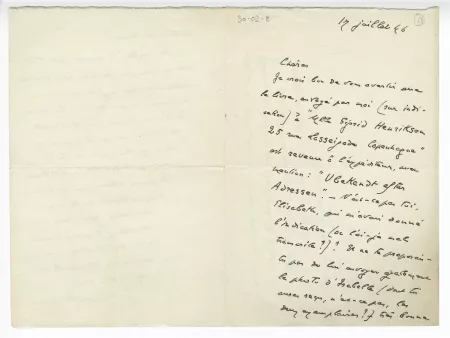 30-02-8
17 juillet 46
Chéries
Je crois bon de vous avertir que
le livre, envoyé par moi (sur indi-
cation) à "Mlle Sigrid Henrikson
25 rue Copenhague"
est revenu à l'expéditeur, avec
mention : "Ubekendt efter
Adressen". – N'est-ce pas toi,
Elisabeth, qui m'avais donné
l'indication (ou l'ai-je mal
transcrite ?) ? Et ne te proposais-
tu pas de lui envoyer
la photo d'Isabelle (dont tu
auras reçu, n'est-ce pas, les
deux exemplaires ?) très bonne